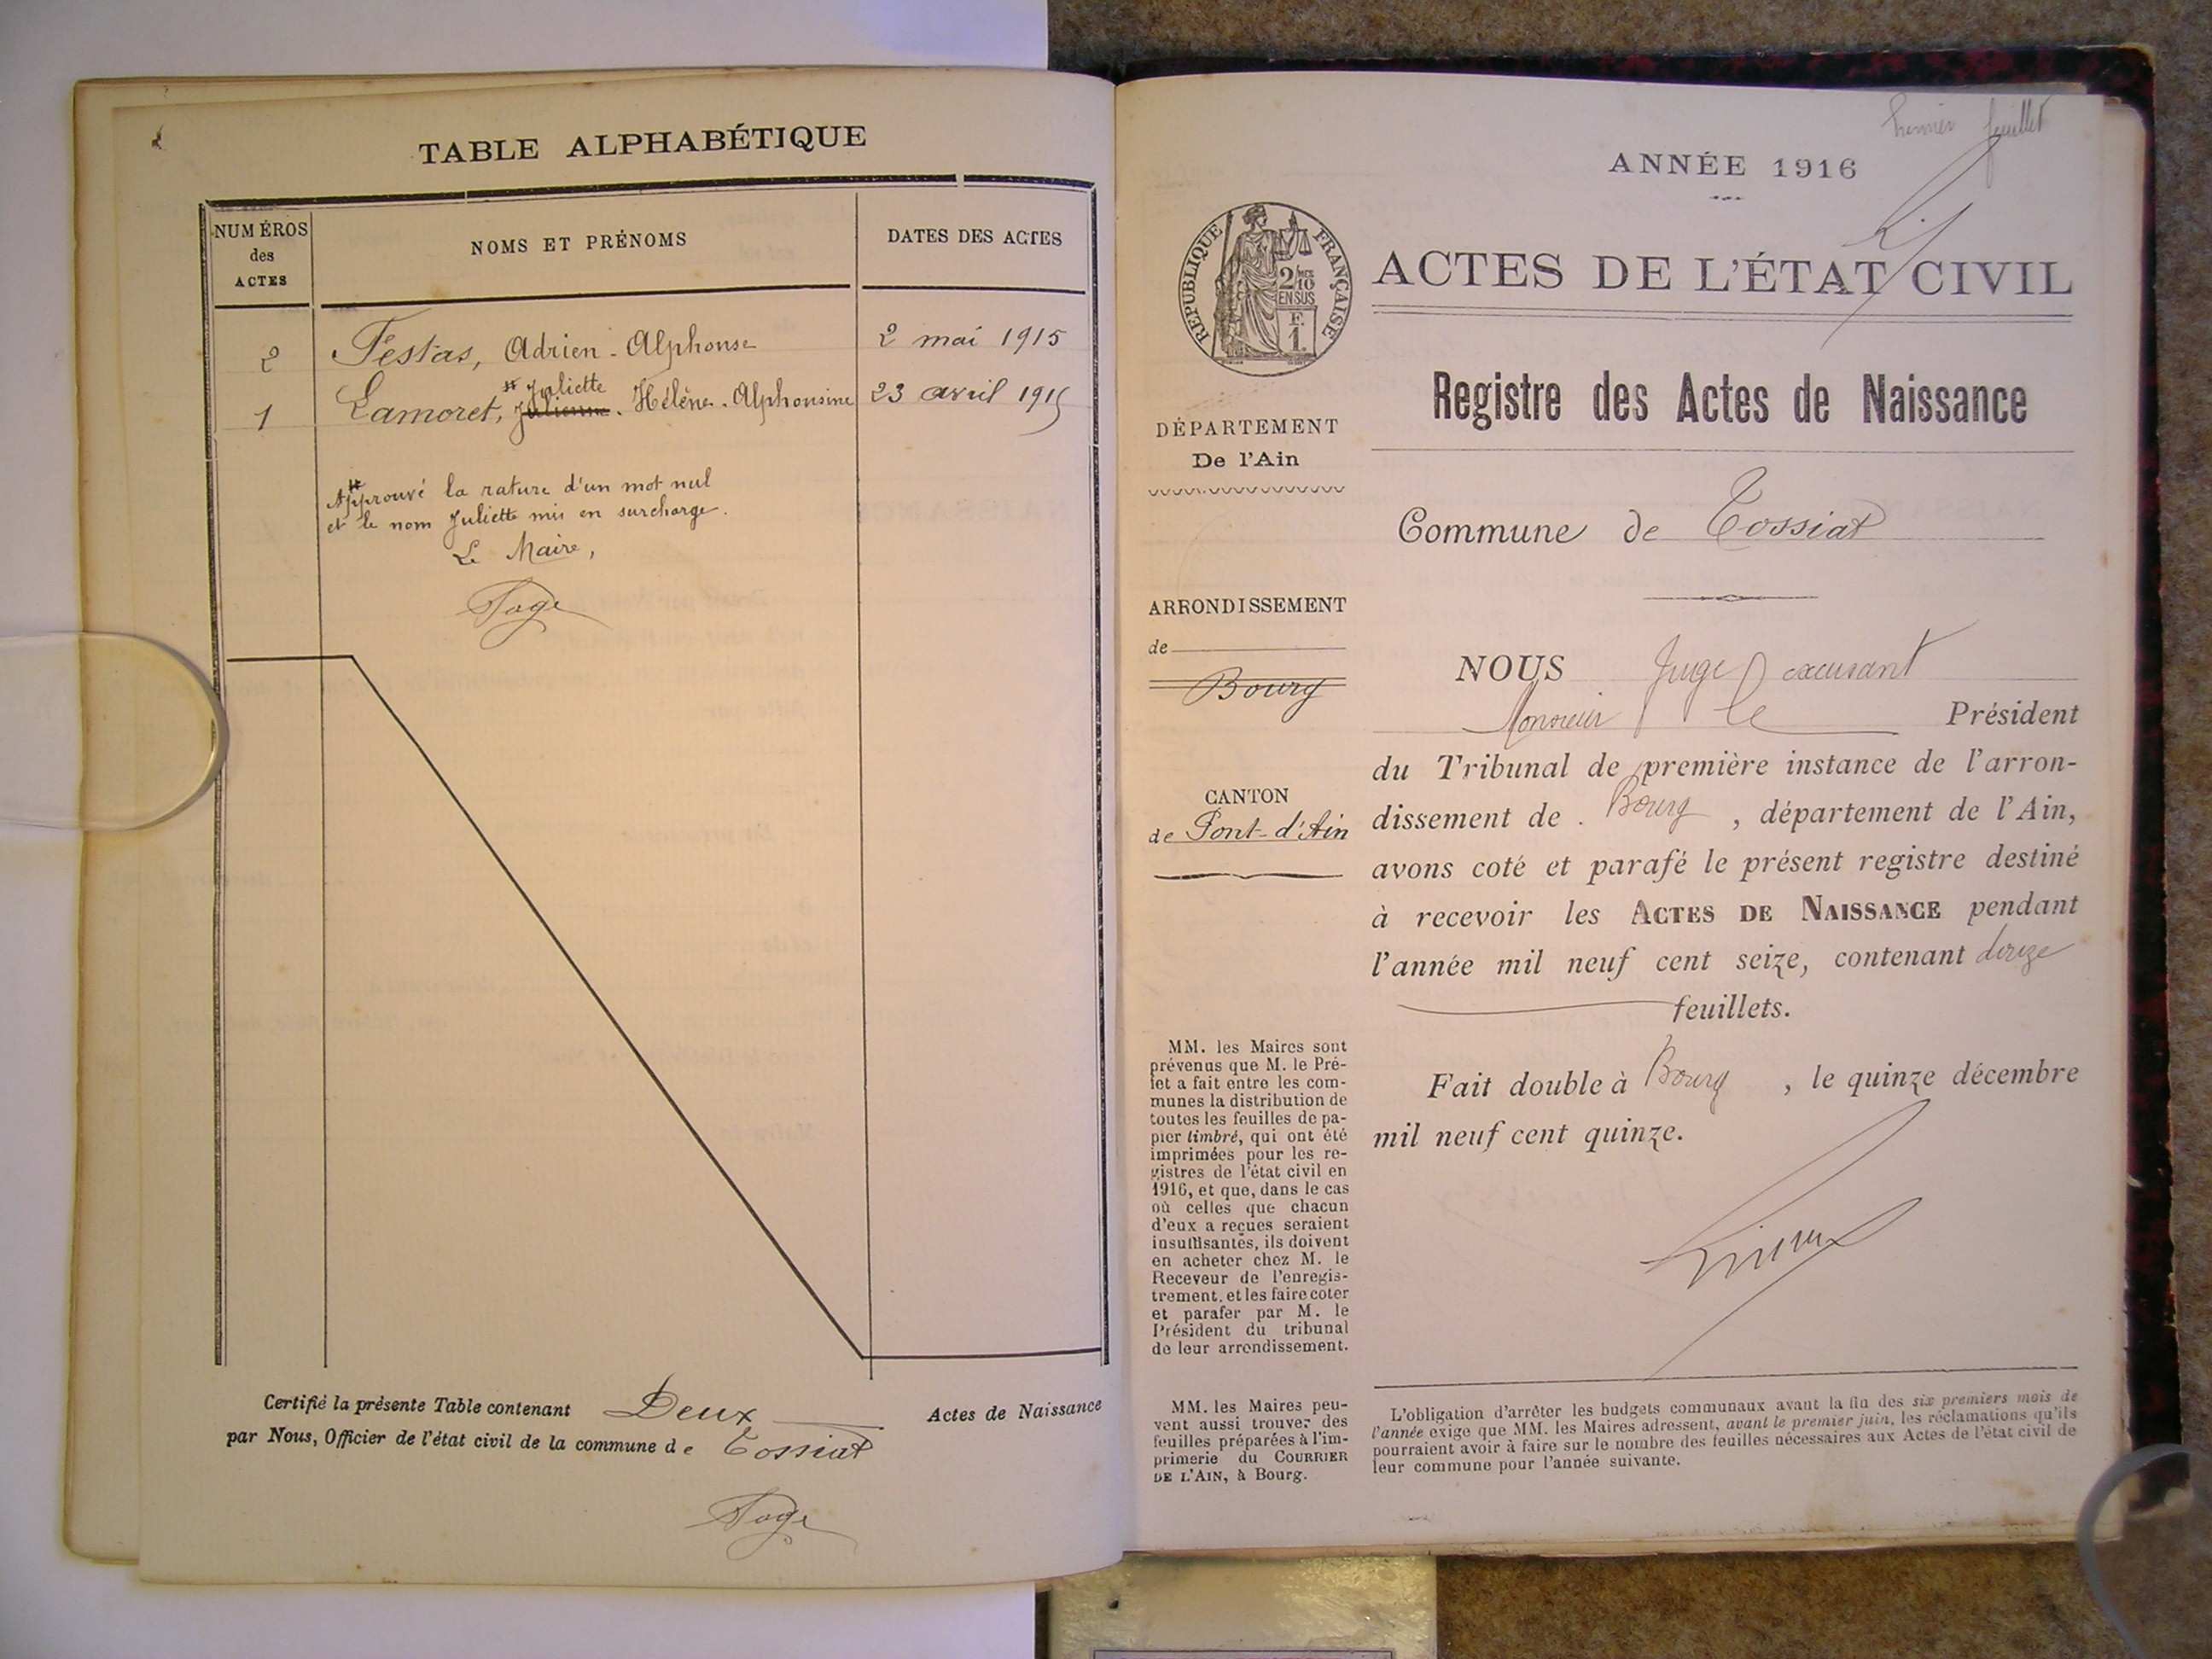 TABLE ALPHABÉTIQUE
NUMÉROS
des
ACTES
NOMS ET PRÉNOMS
DATES DES ACTES
2 Festas, Adrien - Alphonse 2 mai 1915
# Juliette
1 Lamoret, Julienne. Hélène. Alphonsine 23 avril 1915
# Approuvé la rature d'un mot nul
et le nom Juliette mis en surcharge.
Le Maire,
Certifié la présente Table contenant Deux Actes de Naissance
par Nous, Officier de l'état civil de la commune de Tossiat
Premier feuillet
ANNÉE 1916
RÉPUBLIQUE FRANÇAISE
2/10
EN SUS
F.
1.
ACTES DE L'ÉTAT CIVIL
Registre des Actes de Naissance
DÉPARTEMENT
De l'Ain
Commune de Tossiat
ARRONDISSEMENT
de
Bourg
CANTON
de Pont-d'Ain
NOUS Juge
Monsieur le Président
du Tribunal de première instance de l'arron-
dissement de Bourg, département de l'Ain,
avons coté et parafé le présent registre destiné
à recevoir les ACTES DE NAISSANCE pendant
l'année mil neuf cent seize, contenant douze
feuillets.
Fait double à Bourg, le quinze décembre
mil neuf cent quinze.
MM. les Maires sont
prévenus que M. le Pré-
fet a fait entre les com-
munes la distribution de
toutes les feuilles de pa-
pier timbré, qui ont été
imprimées pour les re-
gistres de l'état civil en
1916, et que, dans le cas
où celles que chacun
d'eux a reçues seraient
insuffisantes, ils doivent
en acheter chez M. le
Receveur de l'enregis-
trement, et les faire coter
et parafer par M. le
Président du tribunal
de leur arrondissement.
MM. les Maires peu-
vent aussi trouver des
feuilles préparées à l'im-
primerie du COURRIER
DE L'AIN, à Bourg.
L'obligation d'arrêter les budgets communaux avant la fin des six premiers mois de
l'année exige que MM. les Maires adressent, avant le premier juin, les réclamations qu'ils
pourraient avoir à faire sur le nombre des feuilles nécessaires aux Actes de l'état civil de
leur commune pour l'année suivante.